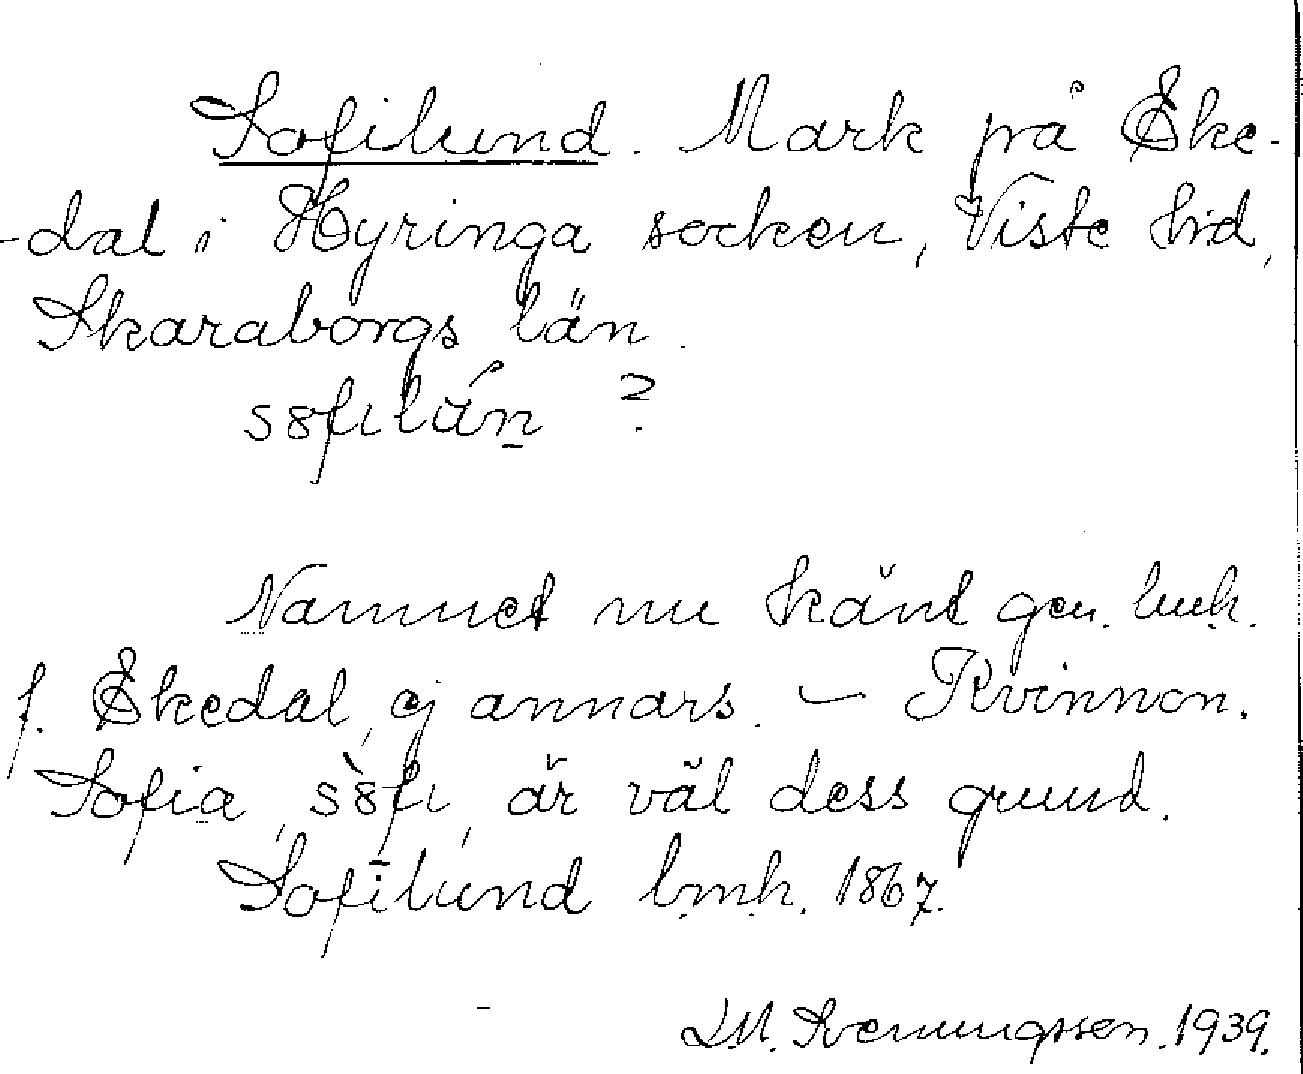 Sofilund. Mark på Eke-
-dal i Hyringa socken, Viste hrd,
Skaraborgs län.
?
Namnet nu känt gen. lmh.
f. Ekedal, ej annars. – Kvinnon.
Sofia, är väl dess grund.
Sofilund lmh. 1867.
1939.